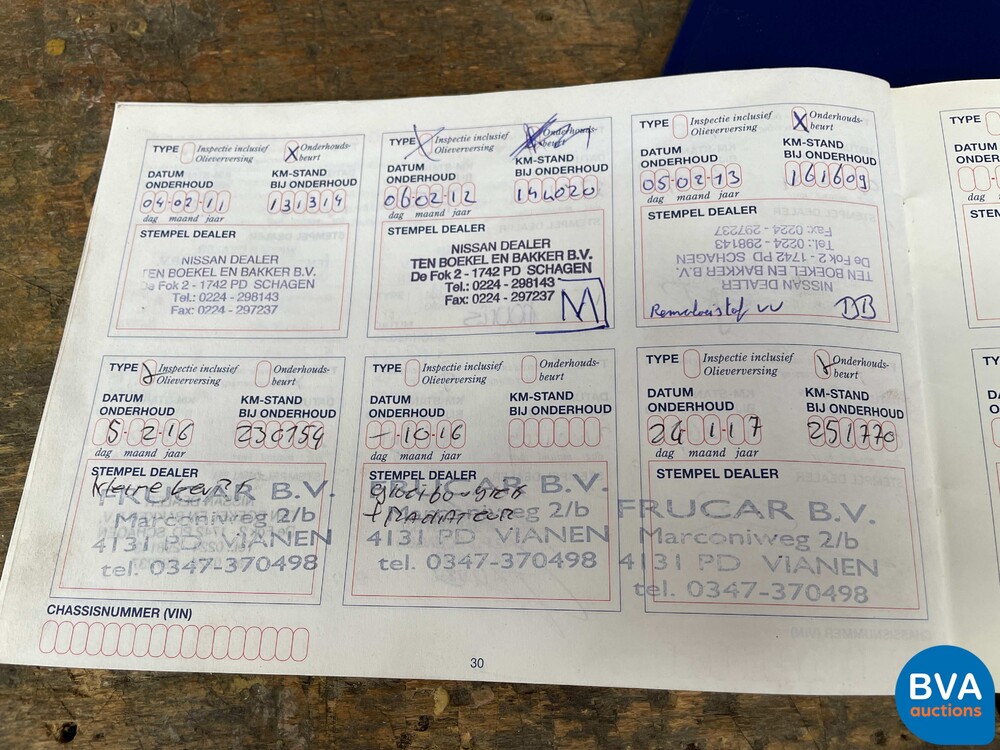 TYPE Inspectie inclusief Olieverversing X Onderhouds-beurt
DATUM ONDERHOUD KM-STAND BIJ ONDERHOUD
04-02-11 131314
dag maand jaar
STEMPEL DEALER
NISSAN DEALER
TEN BOEKEL EN BAKKER B.V.
De Fok 2 - 1742 PD SCHAGEN
Tel.: 0224 - 298143
Fax: 0224 - 297237
TYPE X Inspectie inclusief Olieverversing
DATUM ONDERHOUD KM-STAND BIJ ONDERHOUD
06-02-12 144020
dag maand jaar
STEMPEL DEALER
NISSAN DEALER
TEN BOEKEL EN BAKKER B.V.
De Fok 2 - 1742 PD SCHAGEN
Tel.: 0224 - 298143
Fax: 0224 - 297237
M
TYPE Inspectie inclusief Olieverversing X Onderhouds-beurt
DATUM ONDERHOUD KM-STAND BIJ ONDERHOUD
05-02-13 161609
dag maand jaar
STEMPEL DEALER
NISSAN DEALER
TEN BOEKEL EN BAKKER B.V.
De Fok 2 - 1742 PD SCHAGEN
Tel.: 0224 - 298143
Fax: 0224 - 297237
Remvloeistof VV BB
TYPE X Inspectie inclusief Olieverversing Onderhouds-beurt
DATUM ONDERHOUD KM-STAND BIJ ONDERHOUD
5-2-16 230154
dag maand jaar
STEMPEL DEALER
kleine beurt
FRUCAR B.V.
Marconiweg 2/b
4131 PD VIANEN
tel. 0347-370498
TYPE Inspectie inclusief Olieverversing Onderhouds-beurt
DATUM ONDERHOUD KM-STAND BIJ ONDERHOUD
-10-16
dag maand jaar
STEMPEL DEALER
+ RADIATEUR
FRUCAR B.V.
Marconiweg 2/b
4131 PD VIANEN
tel. 0347-370498
TYPE Inspectie inclusief Olieverversing X Onderhouds-beurt
DATUM ONDERHOUD KM-STAND BIJ ONDERHOUD
24 1-17 251770
dag maand jaar
STEMPEL DEALER
FRUCAR B.V.
Marconiweg 2/b
4131 PD VIANEN
tel. 0347-370498
CHASSISNUMMER (VIN)
30
BVA
auctions